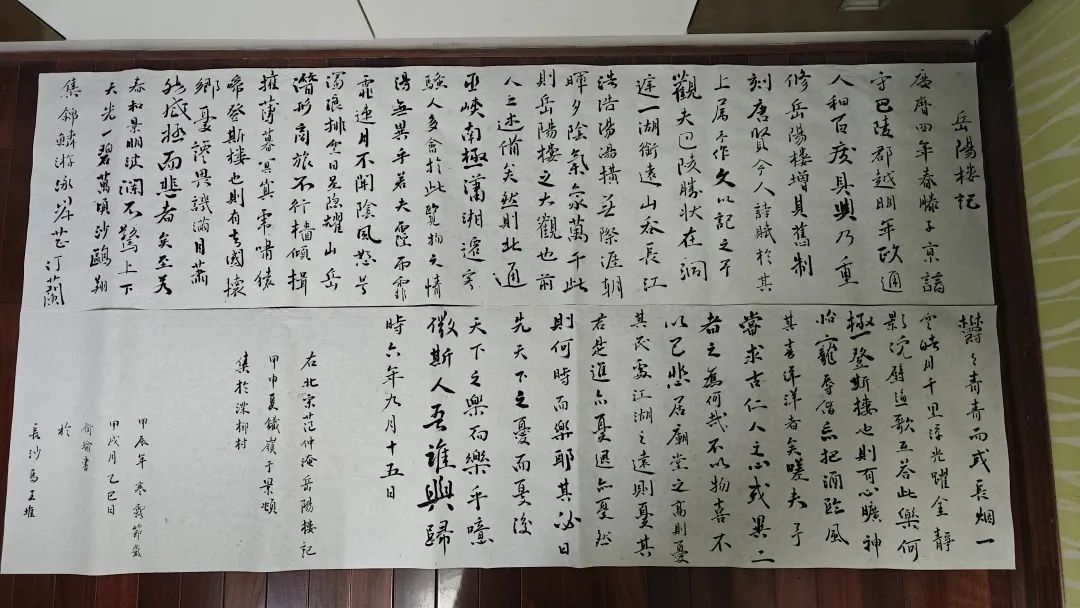 岳陽樓記
慶曆四年春滕子京謫
守巴陵郡越明年政通
人和百廢具興乃重
修岳陽樓增其舊制
刻唐賢今人詩賦於其
上属予作文以記之予
觀夫巴陵勝狀在洞
庭一湖銜遠山吞長江
浩浩湯湯橫無際涯朝
暉夕陰氣象萬千此
則岳陽樓之大觀也前
人之述備矣然則北通
巫峽南極瀟湘遷客
騷人多會於此覽物之情
得無異乎若夫霪雨霏
霏連月不開陰風怒号
濁浪排空日星隐耀山岳
潛形商旅不行檣傾楫
摧薄暮冥冥虎嘯猿
希登斯樓也則有去國懷
鄉憂讒畏譏滿目蕭
然感極而悲者矣至若
春和景明波瀾不驚上下
天光一碧萬頃沙鷗翔
集錦鱗游泳岸芷汀蘭
欝々青青而或長烟一
空皓月千里浮光躍金静
影沉壁漁歌互答此樂何
極登斯樓也則有心曠神
怡寵辱偕忘把酒臨風
其喜洋洋者矣嗟夫予
嘗求古仁人之心或異二
者之為何哉不以物喜不
以己悲居廟堂之高則憂
其民處江湖之遠則憂其
君是進亦憂退亦憂然
則何時而樂耶其必曰
先天下之憂而憂後
天下之樂而樂乎噫
微斯人吾誰與歸
時六年九月十五日
右北宋范仲淹岳陽樓記
甲申夏鐵嶺于景頫
集於深柳村
甲辰年寒露節氣
甲戌月乙巳日
俞瑜書
於
長沙馬王堆